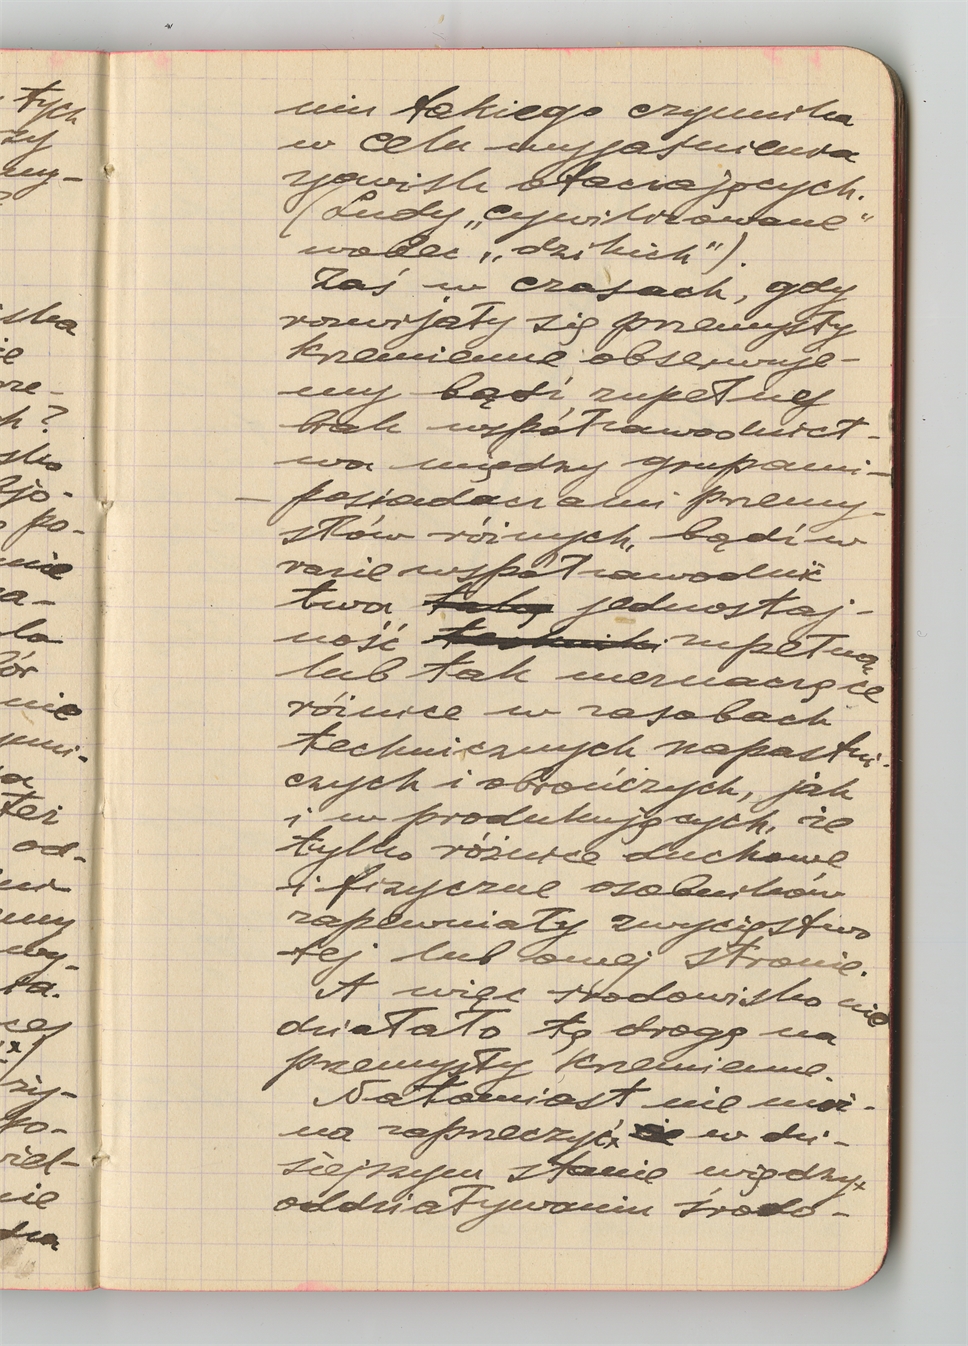 tych
zy
my-
ska
ie
rze-
h?
sko
zjo-
po-
nie
a-
la
ór
nie
tei
od-
my
wy-
ta.
cej
zy-
ko-
wiel-
nie
niu takiego czynnika
w celu wyjaśnienia
zjawisk otaczających.
(Ludy „cywilizowane"
wobec „dzikich").
Zaś w czasach, gdy
rozwijały się przemysły
krzemienne obserwuje-
my bądź zupełny
brak współzawodnict-
wa między grupami-
- posiadaczami przemy-
słów różnych, bądź w
razie współzawodnic
twa jednostaj-
ność zupełną
lub tak nieznaczące
różnice w zasobach
technicznych napastni-
czych i obrończych, jak
i w produkujących, że
tylko różnice duchowe
i fizyczne osobników
zapewniały zwycięstwo
tej lub owej stronie.
A więc środowisko nie
działało tą drogą na
przemysły krzemienne.
Natomiast nie moż-
na zaprzeczyć, w dzi-
siejszym stanie wiedzy,
oddziaływaniu środo-